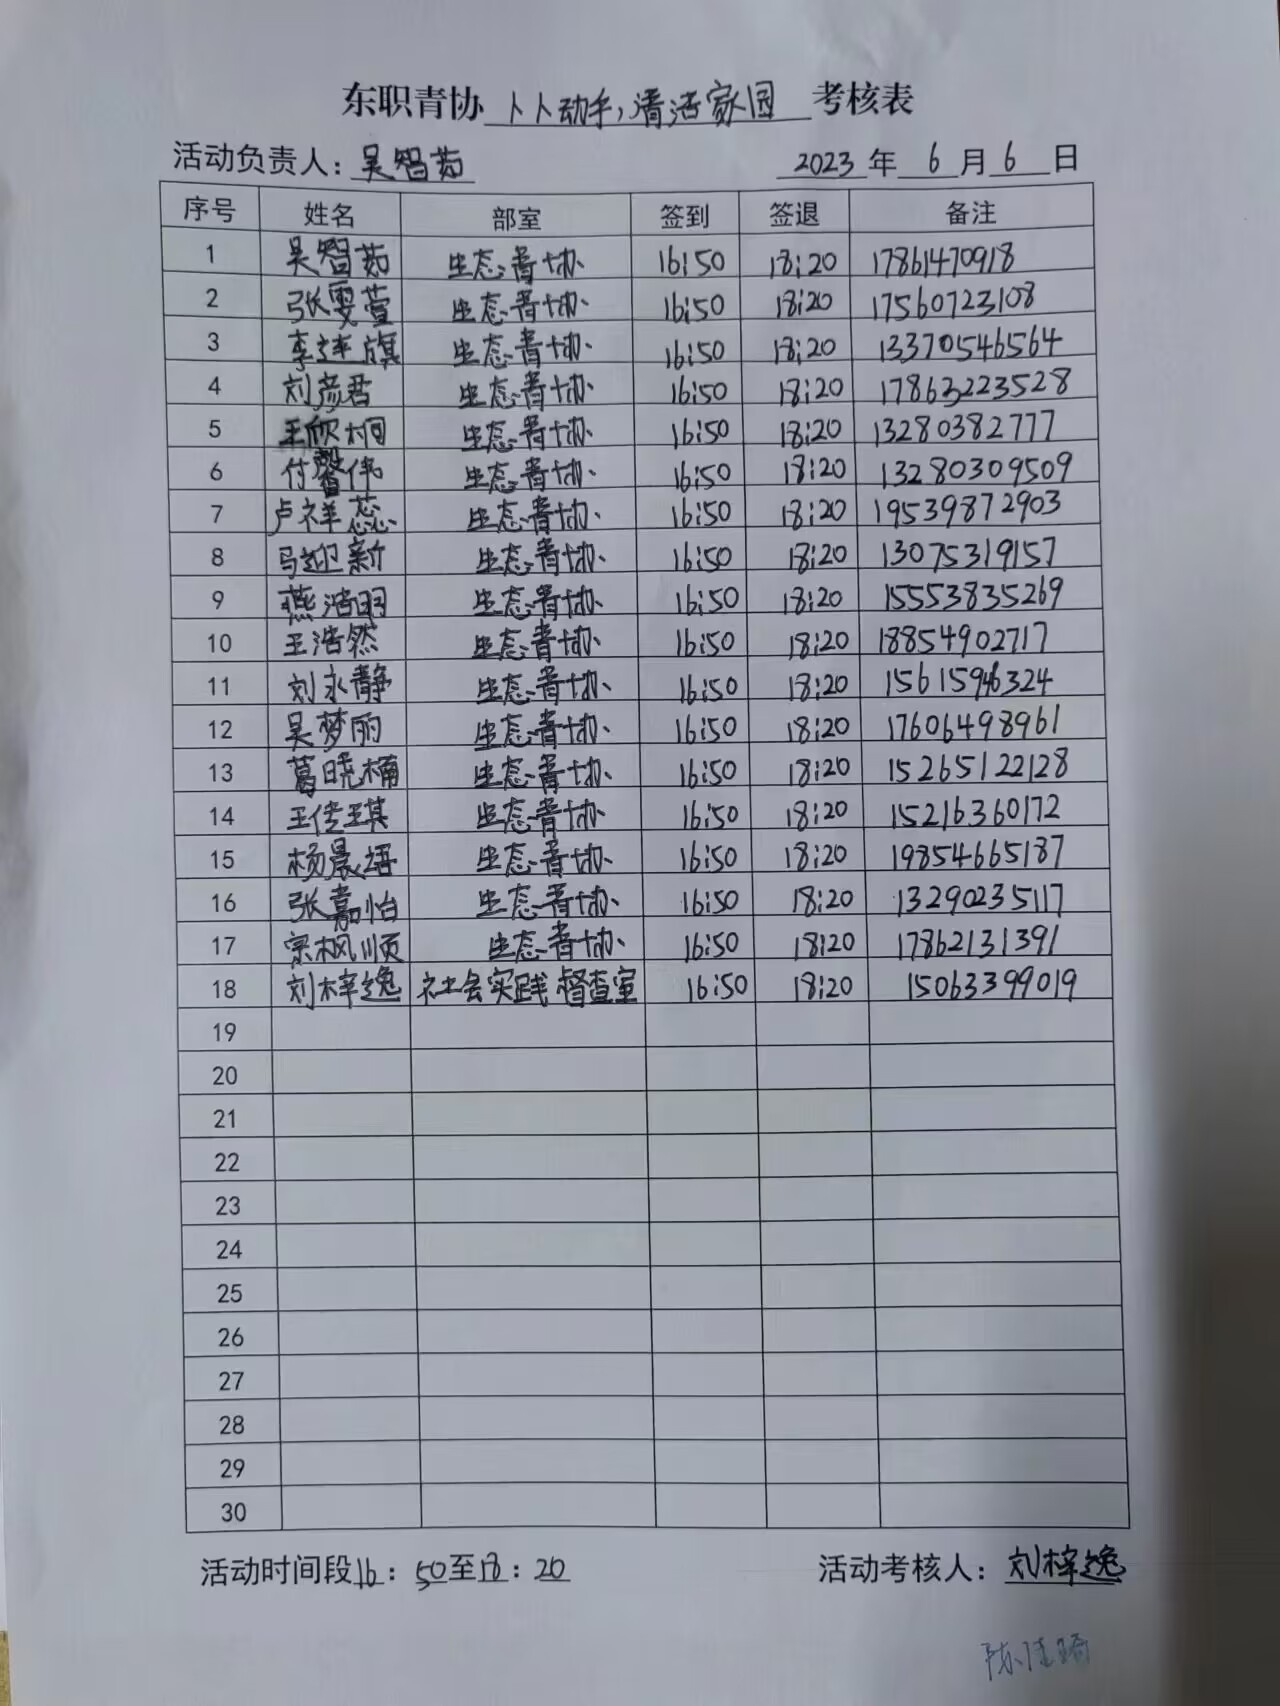 东职青协 人人动手,清洁家园 考核表
活动负责人: 吴智茹 2023 年 6 月 6 日
序号 姓名 部室 签到 签退 备注
1 吴智茹 生态青协 16:50 18:20 17861470918
2 张雯萱 生态青协 16:50 18:20 17560723108
3 李梓旗 生态青协 16:50 18:20 13370546564
4 刘彦君 生态青协 16:50 18:20 17863223528
5 王欣桐 生态青协 16:50 18:20 13280382777
6 付馨伟 生态青协 16:50 18:20 13280309509
7 卢祥蕊 生态青协 16:50 18:20 19539872903
8 马迎新 生态青协 16:50 18:20 13075319157
9 燕浩羽 生态青协 16:50 18:20 15553835269
10 王浩然 生态青协 16:50 18:20 18854902717
11 刘永静 生态青协 16:50 18:20 15615946324
12 吴梦丽 生态青协 16:50 18:20 17606498961
13 葛晓楠 生态青协 16:50 18:20 15265122128
14 王佳琪 生态青协 16:50 18:20 15216360172
15 杨晨语 生态青协 16:50 18:20 19854665187
16 张嘉怡 生态青协 16:50 18:20 13290235117
17 宗枫顺 生态青协 16:50 18:20 17862131391
18 刘梓逸 社会实践督查室 16:50 18:20 15063399019
19
20
21
22
23
24
25
26
27
28
29
30
活动时间段16:50至18:20 活动考核人: 刘梓逸
陈佳琦